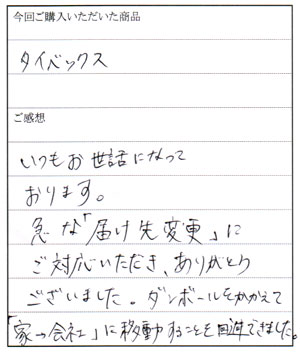 今回ご購入いただいた商品
タイベックス
ご感想
いつもお世話になって
おります。
急な「届け先変更」に
ご対応いただき、ありがとう
ございました。ダンボールをかかえて
「家→会社」に移動することを回避できました。